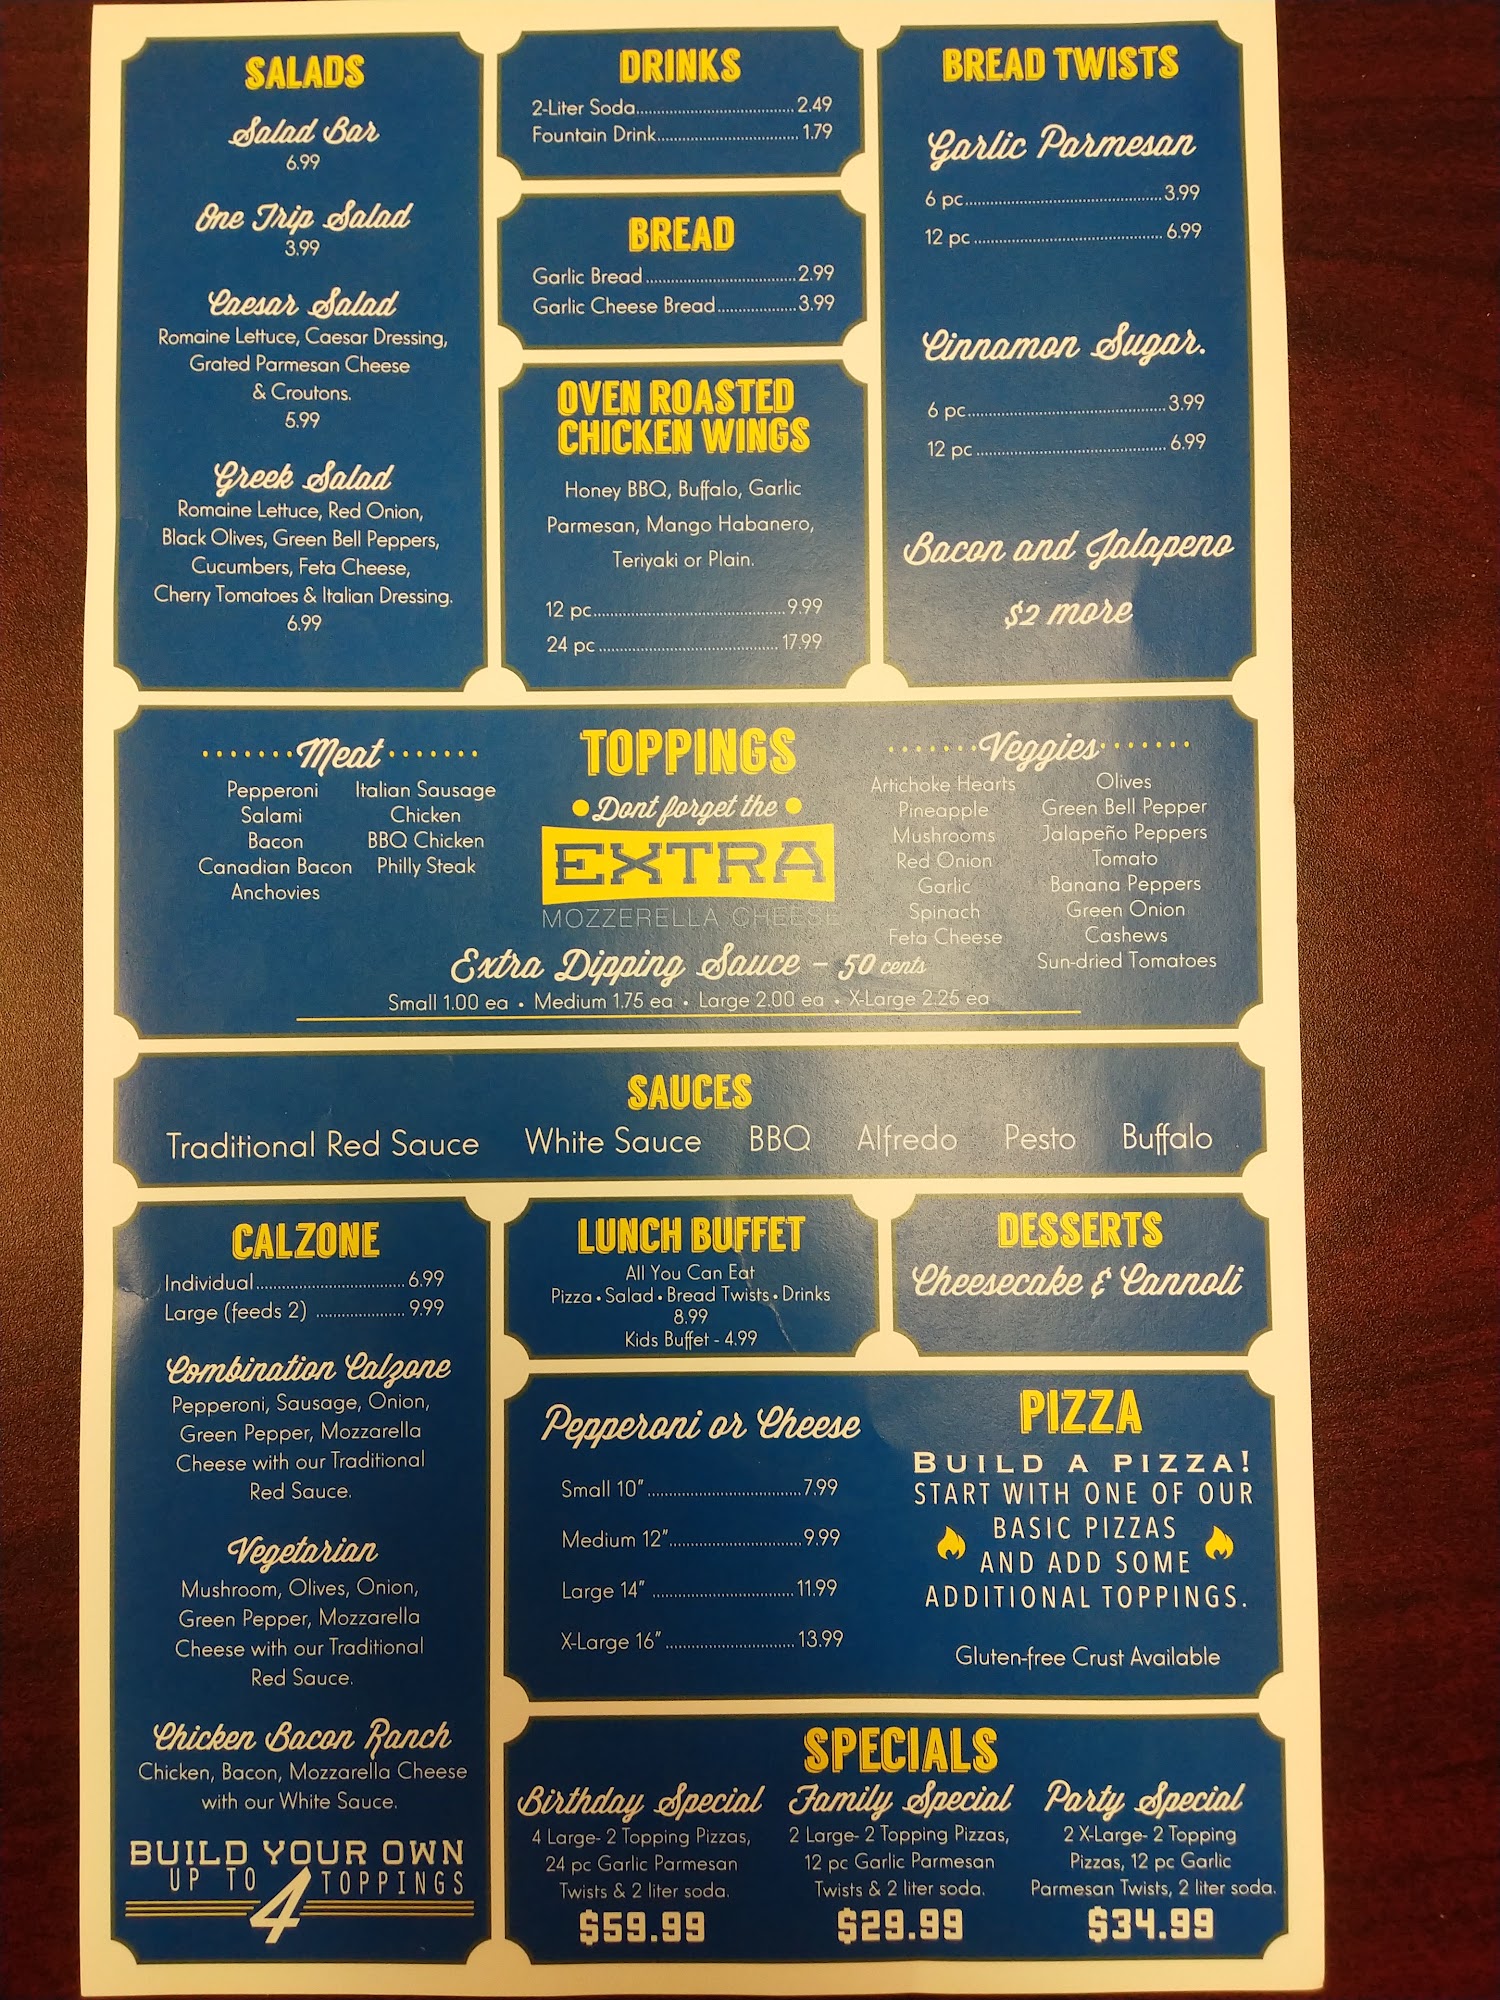 SALADS
Salad Bar
6.99
One Trip Salad
3.99
Caesar Salad
Romaine Lettuce, Caesar Dressing,
Grated Parmesan Cheese
& Croutons.
5.99
Greek Salad
Romaine Lettuce, Red Onion,
Black Olives, Green Bell Peppers,
Cucumbers, Feta Cheese,
Cherry Tomatoes & Italian Dressing.
6.99
DRINKS
2-Liter Soda 2.49
Fountain Drink 1.79
BREAD
Garlic Bread 2.99
Garlic Cheese Bread 3.99
OVEN ROASTED
CHICKEN WINGS
Honey BBQ, Buffalo, Garlic
Parmesan, Mango Habanero,
Teriyaki or Plain.
12 pc 9.99
24 pc 17.99
BREAD TWISTS
Garlic Parmesan
6 pc 3.99
12 pc 6.99
Cinnamon Sugar.
6 pc 3.99
12 pc 6.99
Bacon and Jalapeno
$2 more
Meat
Pepperoni
Salami
Bacon
Canadian Bacon
Anchovies
Italian Sausage
Chicken
BBQ Chicken
Philly Steak
TOPPINGS
Dont forget the
EXTRA
MOZZERELLA CHEESE
Veggies
Artichoke Hearts
Pineapple
Mushrooms
Red Onion
Garlic
Spinach
Feta Cheese
Olives
Green Bell Pepper
Jalapeño Peppers
Tomato
Banana Peppers
Green Onion
Cashews
Sun-dried Tomatoes
Extra Dipping Sauce - 50 cents
Small 1.00 ea • Medium 1.75 ea • Large 2.00 ea • X-Large 2.25 ea
SAUCES
Traditional Red Sauce White Sauce BBQ Alfredo Pesto Buffalo
CALZONE
Individual 6.99
Large (feeds 2) 9.99
Combination Calzone
Pepperoni, Sausage, Onion,
Green Pepper, Mozzarella
Cheese with our Traditional
Red Sauce.
Vegetarian
Mushroom, Olives, Onion,
Green Pepper, Mozzarella
Cheese with our Traditional
Red Sauce.
Chicken Bacon Ranch
Chicken, Bacon, Mozzarella Cheese
with our White Sauce.
BUILD YOUR OWN
UP TO 4 TOPPINGS
LUNCH BUFFET
All You Can Eat
Pizza • Salad • Bread Twists • Drinks
8.99
Kids Buffet - 4.99
DESSERTS
Cheesecake & Cannoli
Pepperoni or Cheese
Small 10" 7.99
Medium 12" 9.99
Large 14" 11.99
X-Large 16" 13.99
PIZZA
BUILD A PIZZA!
START WITH ONE OF OUR
BASIC PIZZAS
AND ADD SOME
ADDITIONAL TOPPINGS.
Gluten-free Crust Available
SPECIALS
Birthday Special
4 Large- 2 Topping Pizzas,
24 pc Garlic Parmesan
Twists & 2 liter soda.
$59.99
Family Special
2 Large- 2 Topping Pizzas,
12 pc Garlic Parmesan
Twists & 2 liter soda.
$29.99
Party Special
2 X-Large- 2 Topping
Pizzas, 12 pc Garlic
Parmesan Twists, 2 liter soda.
$34.99